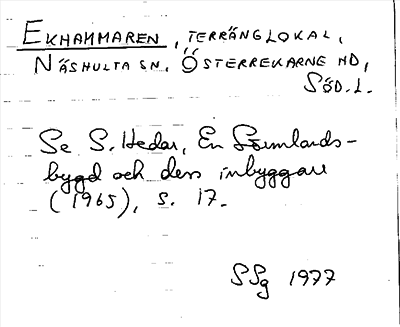 EKHAMMAREN, TERRÄNGLOKAL,
NÄSHULTA SN, ÖSTERREKARNE HD,
SÖD.L.
Se S. Hedar, En Sörmlands-
bygd och dess inbyggare
(1965), s. 17.
SSg 1977